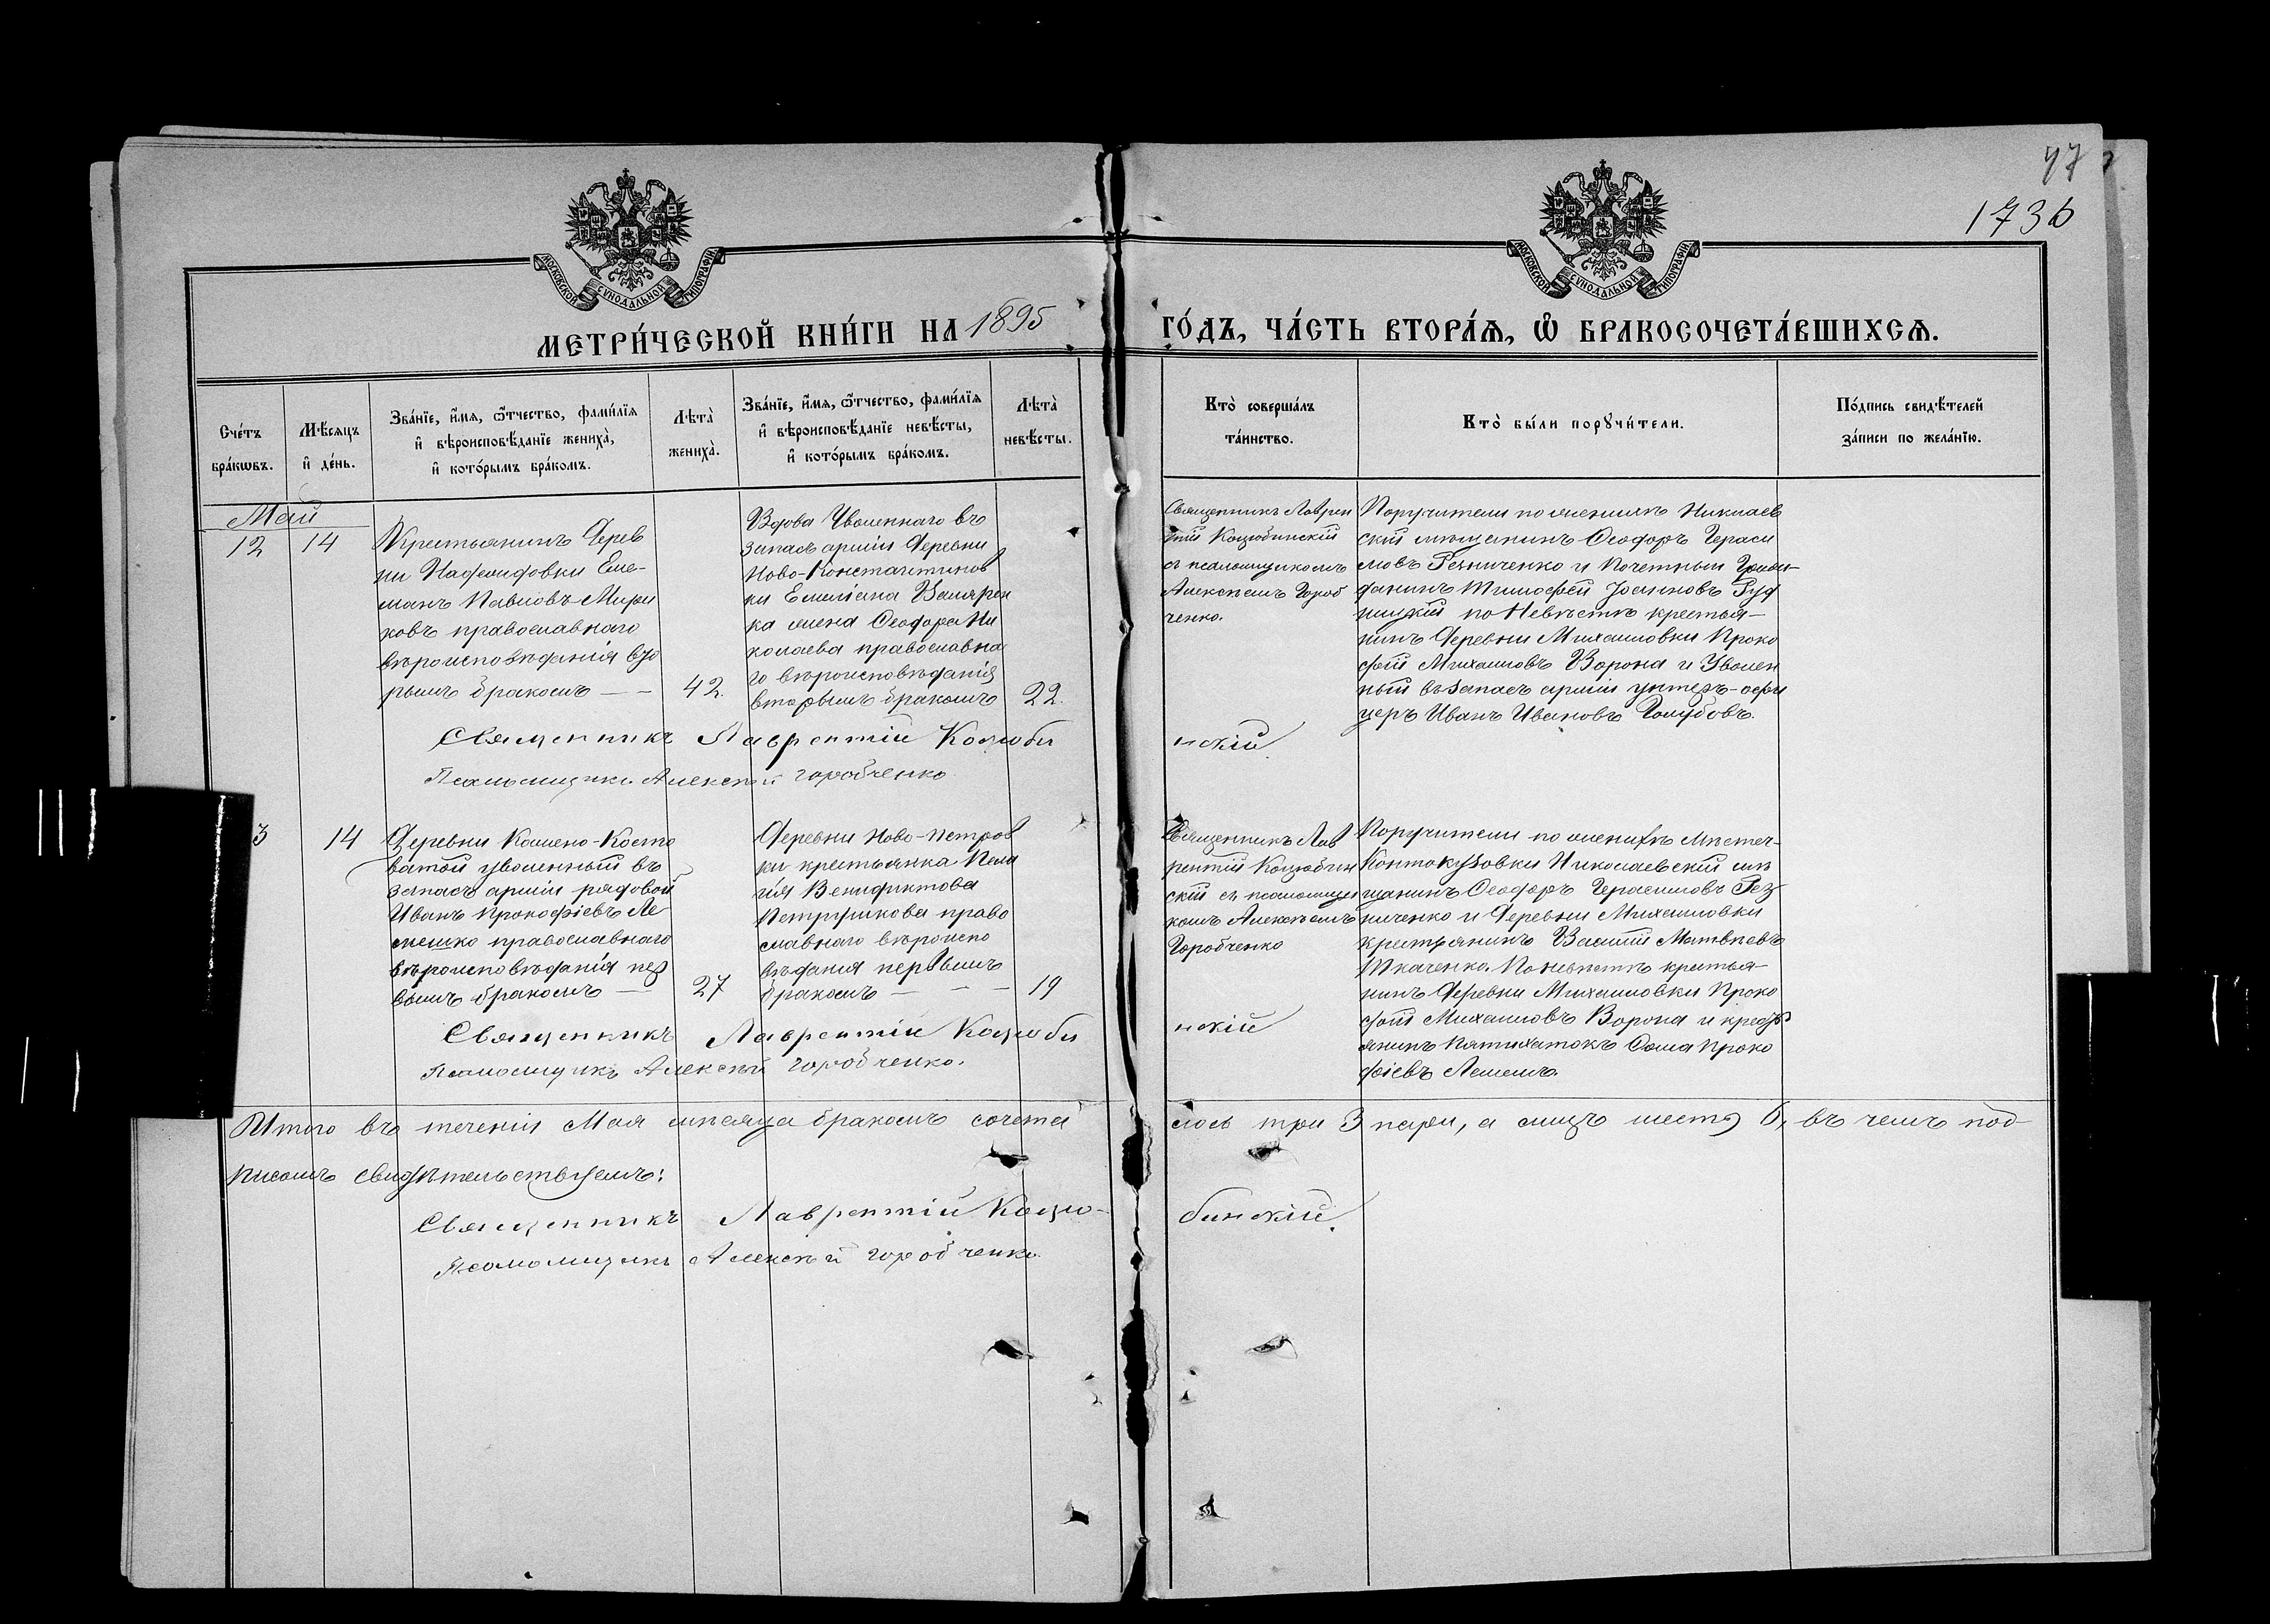 97
1736
МОСКОВСКОЙ СУНОДАЛЬНОЙ ТИПОГРАФІИ
МОСКОВСКОЙ СУНОДАЛЬНОЙ ТИПОГРАФІИ
МЕТРИ́ЧЕСКОЙ КНИ́ГИ НА 1895 ГО́ДЪ, ЧА́СТЬ ВТОРА́Я, Ѡ БРАКОСОЧЕТА́ВШИХСЯ.
Сче́тъ
бра́кѡвъ.
Мѣ́сяцъ
и҆ де́нь.
Зва́нїе, и҆́мя, ѻ҆́тчество, фами́лїя
и҆ вѣроисповѣ́данїе жениха̀,
и҆ кото́рымъ бра́комъ.
Лѣта̀
жениха̀.
Зва́нїе, и҆́мя, ѻ҆́тчество, фами́лїя
и҆ вѣроисповѣ́данїе невѣ́сты,
и҆ кото́рымъ бра́комъ.
Лѣта̀
невѣ́сты.
Кто̀ соверша́лъ
та́инство.
Кто̀ бы́ли порꙋчи́тели.
По́дпись свидѣ́телей
за́писи по жела́нїю.
Май
12
14
Крестьянинъ Дерев
ни
Павловъ Мири
ковъ православнаго
вѣроисповѣданія вто
рымъ бракомъ — —
42.
Вдова Уволеннаго въ
запасъ арміи Деревни
Ново-Константинов
ки Емиліана
ка жена Ѳеодора Ни
колаева православна
го вѣроисповѣданія
вторымъ бракомъ
22.
Священникъ Лаврен
тій Коцюбинскій
съ псаломщикомъ
Алексѣемъ Гороб
ченко.
Поручители по женихѣ Николаев
скій мѣщанинъ Ѳеодоръ Гераси
мовъ Резниченко и Почетный Граж
данинъ Тимофей Руд
ницкій по Невѣстѣ крестья-
нинъ Деревни Михаиловки Проко
фій Михаиловъ Ворона и Уволен
ный въ запасъ арміи унтеръ-офи
церъ Иванъ Ивановъ Голубовъ.
Священникъ Лаврентій Коцюбинскій
Псаломщикъ Алексѣй Горобченко
3
14
Деревни Камено-Косто
ватой уволенный въ
запасъ арміи рядовой
Иванъ Прокофіевъ Ле
мешко православнаго
вѣроисповѣданія пер
вымъ бракомъ —
27
Деревни Ново-Петров
ки крестьянка Пела
гія Венидиктова
Петрушкова право
славнаго вѣроиспо
вѣданія первымъ
бракомъ — — —
19
Священникъ Лав
рентій Коцюбин
скій съ псаломщи
комъ Алексѣемъ
Горобченко
Поручители по женихѣ Мѣстеч-
Контокузовки Николаевскій мѣ
щанинъ Ѳеодоръ Герасимовъ Рез
ниченко и Деревни Михаиловки
крестьянинъ Василій Матвѣевъ
Ткаченко. По невѣстѣ крестья-
нинъ Деревни Михаиловки Проко
фій Михаиловъ Ворона и кресть
янинъ Пятихатокъ Ѳома Проко
фіевъ
Священникъ Лаврентій Коцюбинскій
Псаломщикъ Алексѣй Горобченко.
Итого въ теченіи Мая мѣсяца бракомъ сочета лось три 3 пары, а лицъ шесть 6, въ чемъ под-
писомъ свидѣтельствуемъ:
Священникъ Лаврентій Коцю-бинскій.
Псаломщикъ Алексѣй Горобченко.